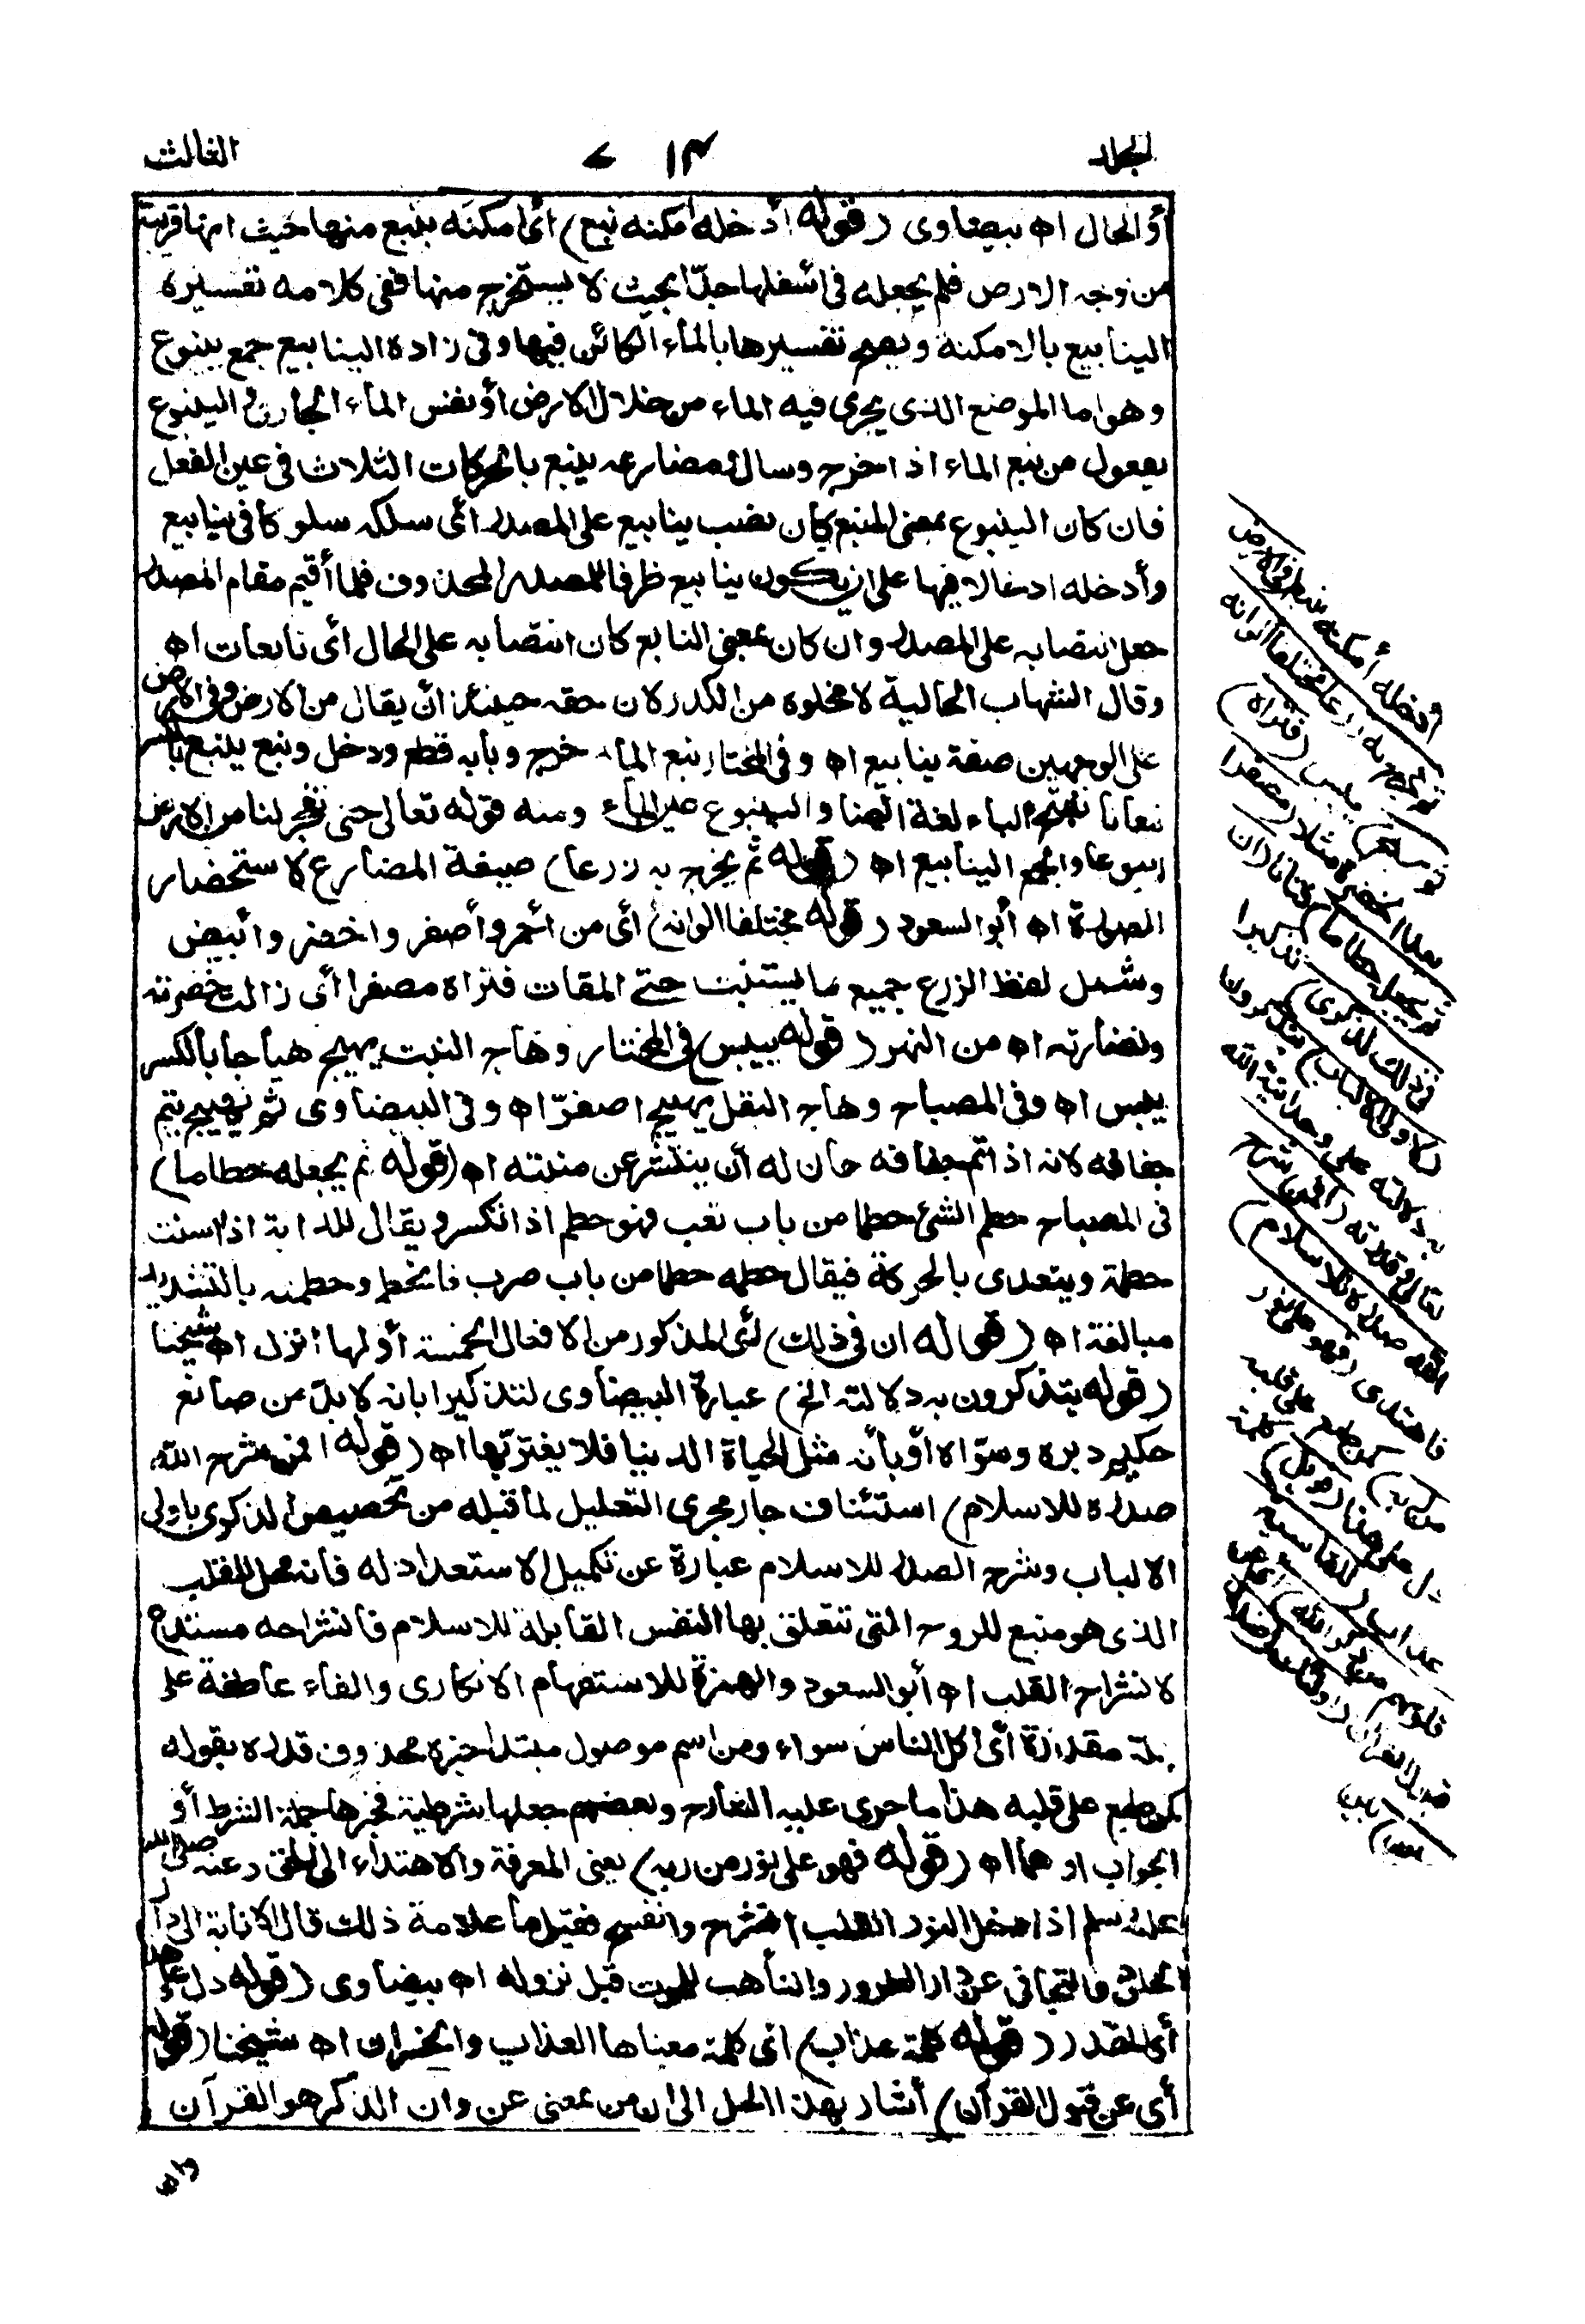 المجلد ١٣ ٧ الثالث
أو الحال اه بيضاوى (قوله أدخله أمكنة نبع) أى أمكنة ينبع منها حيث انها قريبة
من وجه الارض فلم يجعله فى أسفلها جدّا بحيث لا يستخرج منها ففى كلامه تفسيره
الينابيع بالامكنة ويصح تفسيرها بالماء الكائن فيها وفى زاده الينابيع جمع ينبوع
وهو اما الموضع الذى يجرى فيه الماء من خلال الارض أو نفس الماء الجارى والينبوع
يفعول من نبع الماء اذا خرج وسال ومضارعه ينبع بالحركات الثلاث فى عين الفعل
فان كان الينبوع بمعنى المنبع كان نصب ينابيع على المصدر أى سلكه سلوكا فى ينابيع
وأدخله ادخالا فيها على ان يكون ينابيع ظرفا للمصدر المحذوف فلما أقيم مقام المصدر
جعل انتصابه على المصدر وان كان بمعنى النابع كان انتصابه على الحال أى نابعات اه
وقال الشهاب الحالية لا تخلوه من الكدر لان حقه حينئذ أن يقال من الارض وفى الارض
على الوجهين صفة ينابيع اه وفى المختار نبع الماء خرج وبابه قطع ودخل ونبع ينبع بالكسر
نبعانا بفتح الباء لغة أيضا والينبوع عين الماء ومنه قوله تعالى حتى تفجر لنا من الارض
ينبوعا والجمع الينابيع اه (قوله ثم يخرج به زرعا) صيغة المضارع لاستحضار
الصورة اه أبو السعود (قوله مختلفا الوانه) أى من أحمر وأصفر وأخضر وأبيض
وشمل لفظ الزرع جميع ما يستنبت حتى المقات فتراه مصفرا أى زالت خضرته
ونضارته اه من النهر (قوله ييبس) فى المختار وهاج النبت يهيج هياجا بالكسر
يبس اه وفى المصباح وهاج البقل يهيج اصفرّ اه وفى البيضاوى ثم يهيج يتم
جفافه لانه اذا تم جفافه حان له أن ينتثر عن منبته اه (قوله ثم يجعله حطاما)
فى المصباح حطم الشئ حطما من باب تعب فهو حطم اذا تكسر ويقال للدابة اذا أسنت
حطمة ويتعدى بالحركة فيقال حطمه حطما من باب ضرب فانحطم وحطمته بالتشديد
مبالغة اه (قوله ان فى ذلك) أى المذكور من الافعال الخمسة أولها أنزل اه شيخنا
(قوله يتذكرون به دلالته الخ) عبارة البيضاوى لتذكيرا بانه لا بدّ من صانع
حكيم دبره وسوّاه أو بأنه مثل الحياة الدنيا فلا يغترّ بها اه (قوله أفمن شرح الله
صدره للاسلام) استئناف جار مجرى التعليل لما قبله من تخصيص الذكرى باولى
الالباب وشرح الصدر للاسلام عبارة عن تكميل الاستعداد له فانه محل للقلب
الذى هو منبع للروح التى تتعلق بها النفس القابلة للاسلام فانشراحه مستدع
لانشراح القلب اه أبو السعود والهمزة للاستفهام الانكارى والفاء عاطفة على
جملة مقدرة أى أكل الناس سواء ومن اسم موصول مبتدأ خبره محذوف قدره بقوله
كمن طبع على قلبه هذا ما جرى عليه الشارح وبعضهم جعلها شرطية فخبرها جملة الشرط أو
الجواب او هما اه (قوله فهو على نور من ربه) يعنى المعرفة والاهتداء الى الحق وعنه صلى الله
عليه وسلم اذا دخل النور القلب انشرح وانفسح فقيل ما علامة ذلك قال الانابة الى دار
الخلود والتجافى عن دار الغرور والتأهب للموت قبل نزوله اه بيضاوى (قوله دل على هذا
أى المقدر (قوله كلمة عذاب) أى كلمة معناها العذاب والخسران اه شيخنا (قوله
أى عن قبول القرآن) أشار بهذا الحل الى ان من بمعنى عن وان الذكر هو القرآن
أدخله أمكنة نبع (فى الارض
ثم يخرج به زرعا مختلفا ألوانه
ثم يهيج) ييبس (فتراه)
بعد الخضرة مثلا (مصفرا
ثم يجعله حطاما) فتاتا (ان
فى ذلك لذكرى) تذكيرا
(لاولى الالباب) يتذكرون
به دلالته على وحدانية الله
تعالى وقدرته (أفمن شرح
الله صدره للاسلام)
فاهتدى (فهو على نور
من ربه) كمن طبع على قلبه
دل على هذا (فويل) كلمة
عذاب (للقاسية
قلوبهم من ذكر الله) أى عن
قبول القرآن (أولئك فى ضلال
مبين) بين